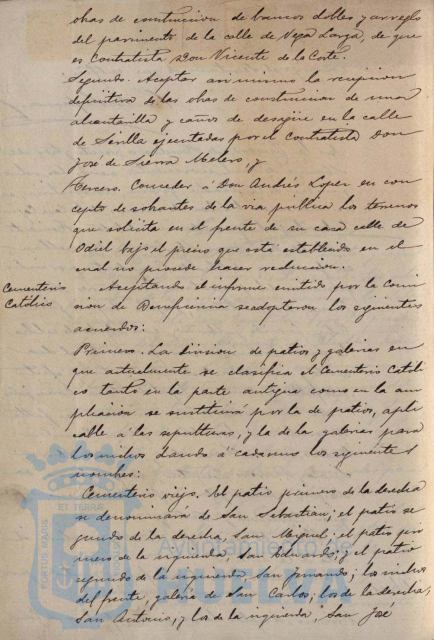 obras de construccion de bancos dobles y arreglo
del pavimento de la calle de Vega Larga, de que
es Contratista Don Vicente de la Corte.
Segundo. Aceptar asi mismo la recepcion
definitiva de las obras de construccion de una
alcantarilla y caños de desagüe en la calle
de Sevilla ejecutadas por el Contratista Don
José de Sierra Melero, y
Tercero. Conceder á Don Andrés Lopez en con
cepto de sobrantes de la via publica los terrenos
que solicita en el frente de su casa calle de
Odiel bajo el precio que está establecido en el
cual no procede hacer reduccion.
Cementerio
Católico
Aceptando el informe emitido por la Comi
sion de Beneficencia se adoptaron los siguientes
acuerdos:
Primero. La division de patios y galerias en
que actualmente se clasifica el Cementerio Católi
co tanto en la parte antigua como en la am
pliacion se sustituirá por la de patios, apli
cable á las sepulturas, y la de galerias para
los nichos dando á cada uno los siguientes
nombres:
Cementerio viejo. El patio primero de la derecha
se denominará de San Sebastian; el patio se
gundo de la derecha, San Miguel; el patio pri
mero de la izquierda, San Eduardo; el patio
segundo de la izquierda, San Fernando; los nichos
del frente, galeria de San Carlos; los de la derecha,
San Antonio, y los de la izquierda, San José
PORTUS MARIS
ET TERRAE
Ayuntamiento de
HUELVA